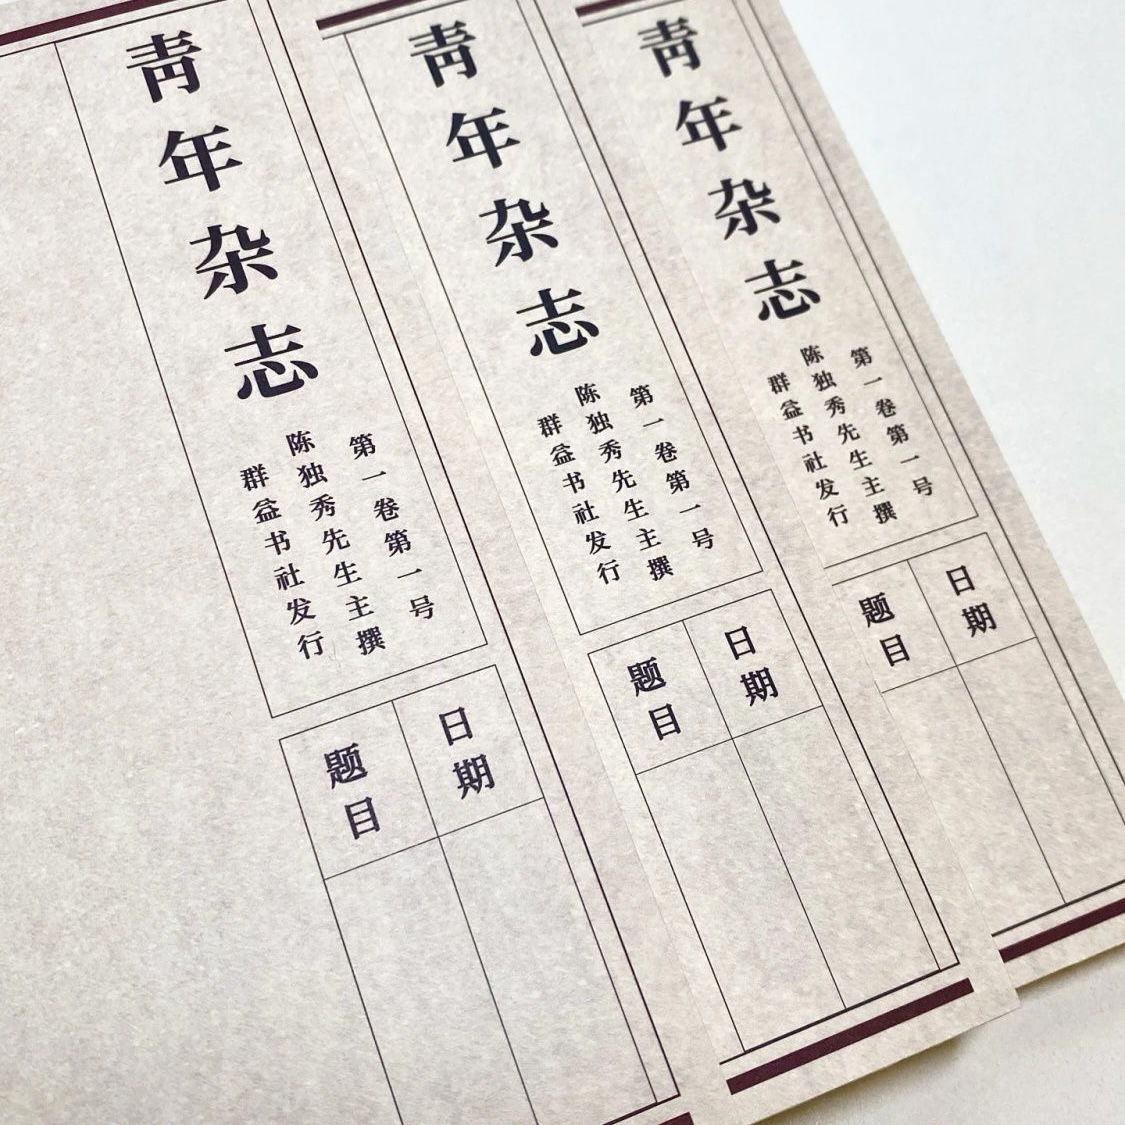 青年杂志
第一卷第一号
陈独秀先生主撰
群益书社发行
日期
题目
青年杂志
第一卷第一号
陈独秀先生主撰
群益书社发行
日期
题目
青年杂志
第一卷第一号
陈独秀先生主撰
群益书社发行
日期
题目